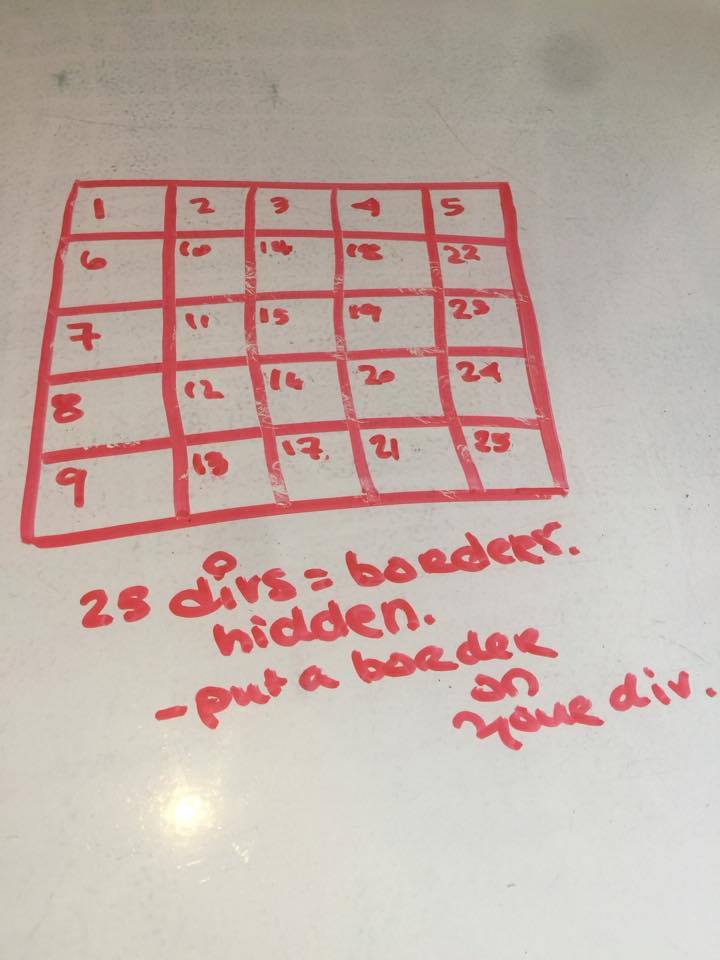 1 2 3 4 5
6 10 14 18 22
7 11 15 19 23
8 12 16 20 24
9 13 17 21 25
25 divs = boedeer.
hidden.
- put a boeder
on
youe div.